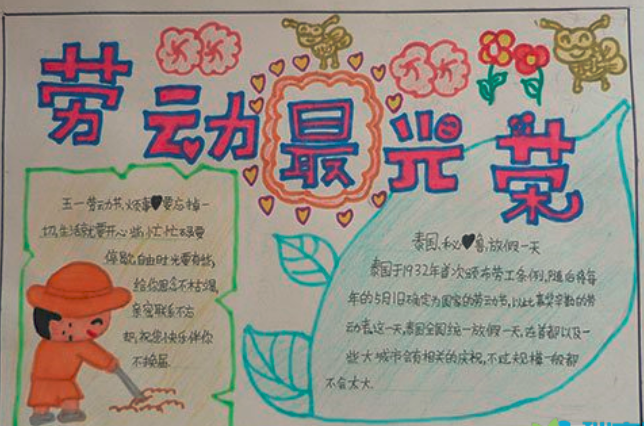 劳动最光荣
五一劳动节,烦事♥要忘掉一
切,生活就要开心些,忙忙碌要
停歇,自由时光要有些,
给你思念不枯竭,
亲密联系不忘
却,祝您快乐伴你
不换届.
泰国、秘♥鲁,放假一天
泰国于1932年首次颁布劳工条例,随后将每
年的5月1日确定为国家的劳动节,以此嘉奖辛勤的劳
动者,这一天,泰国全国统一放假一天,在首都以及一
些大城市会有相关的庆祝,不过规模一般都
不会太大.